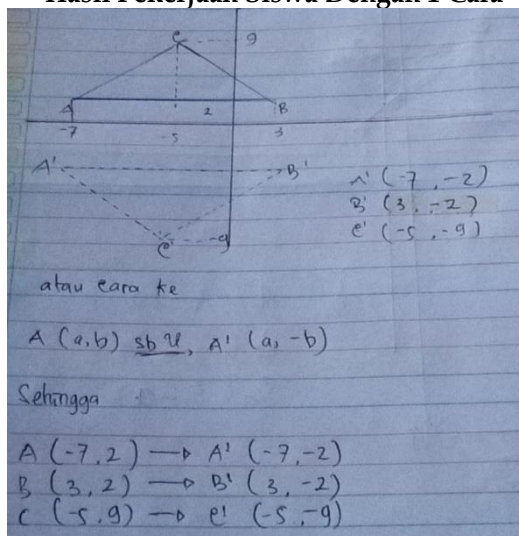 Hasil Pekerjaan Siswa Dengan 1 Cara
C 9
A 2 B
-7 -5 3
A' B'
C' -9
A' (-7, -2)
B' (3, -2)
C' (-5, -9)
atau cara ke
A (a,b) sb x, A' (a, -b)
Sehingga
A (-7,2) → A' (-7,-2)
B (3,2) → B' (3,-2)
C (-5,9) → C' (-5,-9)